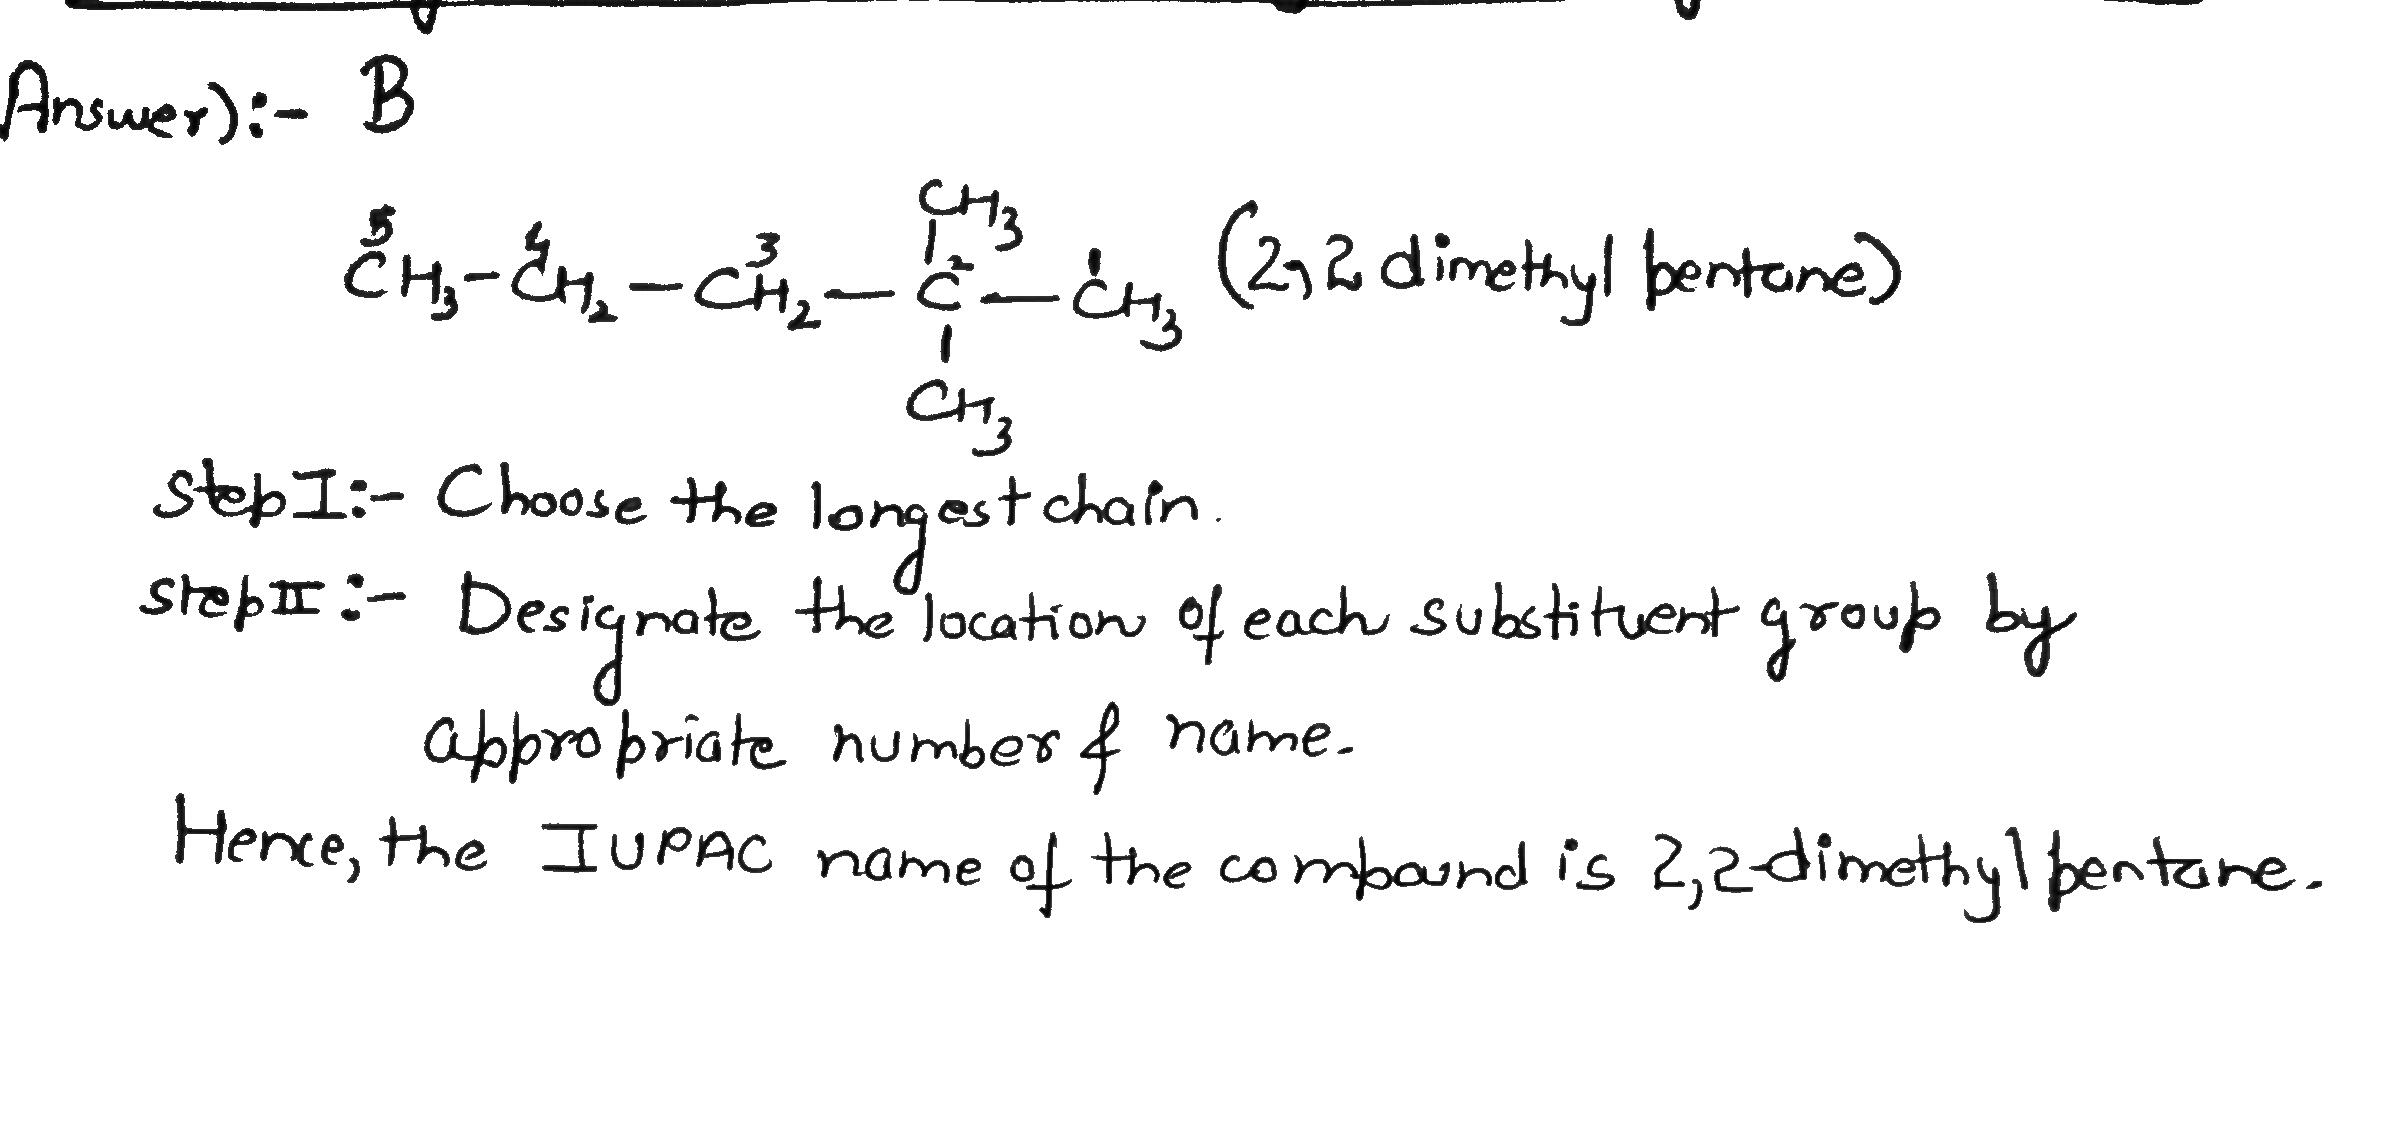 Answer):- B
CH3
5 4 3 2 1
CH3-CH2-CH2-C-CH3 (2,2 dimethyl pentane)
CH3
Step I:- Choose the longest chain.
Step II:- Designate the location of each substituent group by
appropriate number & name.
Hence, the IUPAC name of the compound is 2,2-dimethyl pentane.